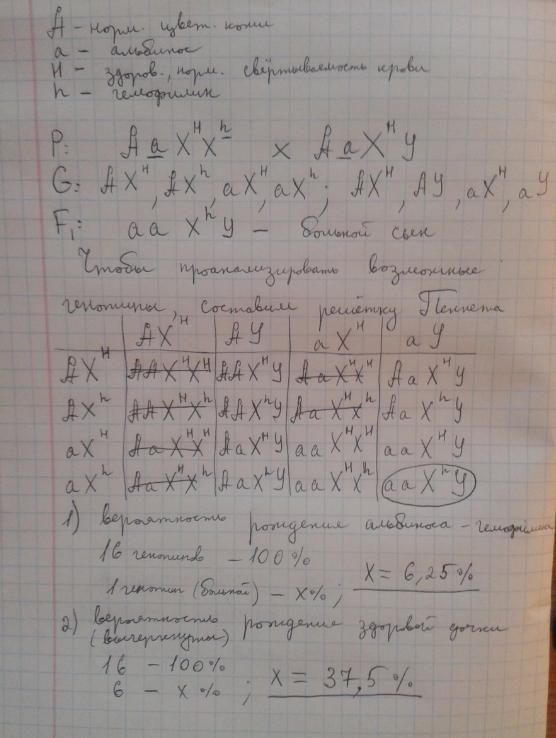 A - норм. цвет. кожи
a - альбинос
H - здоров., норм. свёртываемость крови
h - гемофилик
P: A a X^H X^h x A a X^H У
G: AX^H, AX^h, aX^H, aX^h; AX^H, AУ, aX^H, aУ
F₁: aa X^h У - больной сын
Чтобы проанализировать возможные
генотипы, составим решётку Пеннета
AX^H AУ aX^H aУ
AX^H AAX^HX^H AAX^HУ AaX^HX^H AaX^HУ
AX^h AAX^HX^h AAX^hУ AaX^HX^h AaX^hУ
aX^H AaX^HX^H AaX^HУ aaX^HX^H aaX^HУ
aX^h AaX^HX^h AaX^hУ aaX^HX^h aaX^hУ
1) вероятность рождения альбиноса - гемофилика
16 генотипов - 100%
1 генотип (больной) - x%; x = 6,25%
2) вероятность рождение здоровой дочки
(вычеркнуты)
16 - 100%
6 - x%; x = 37,5%